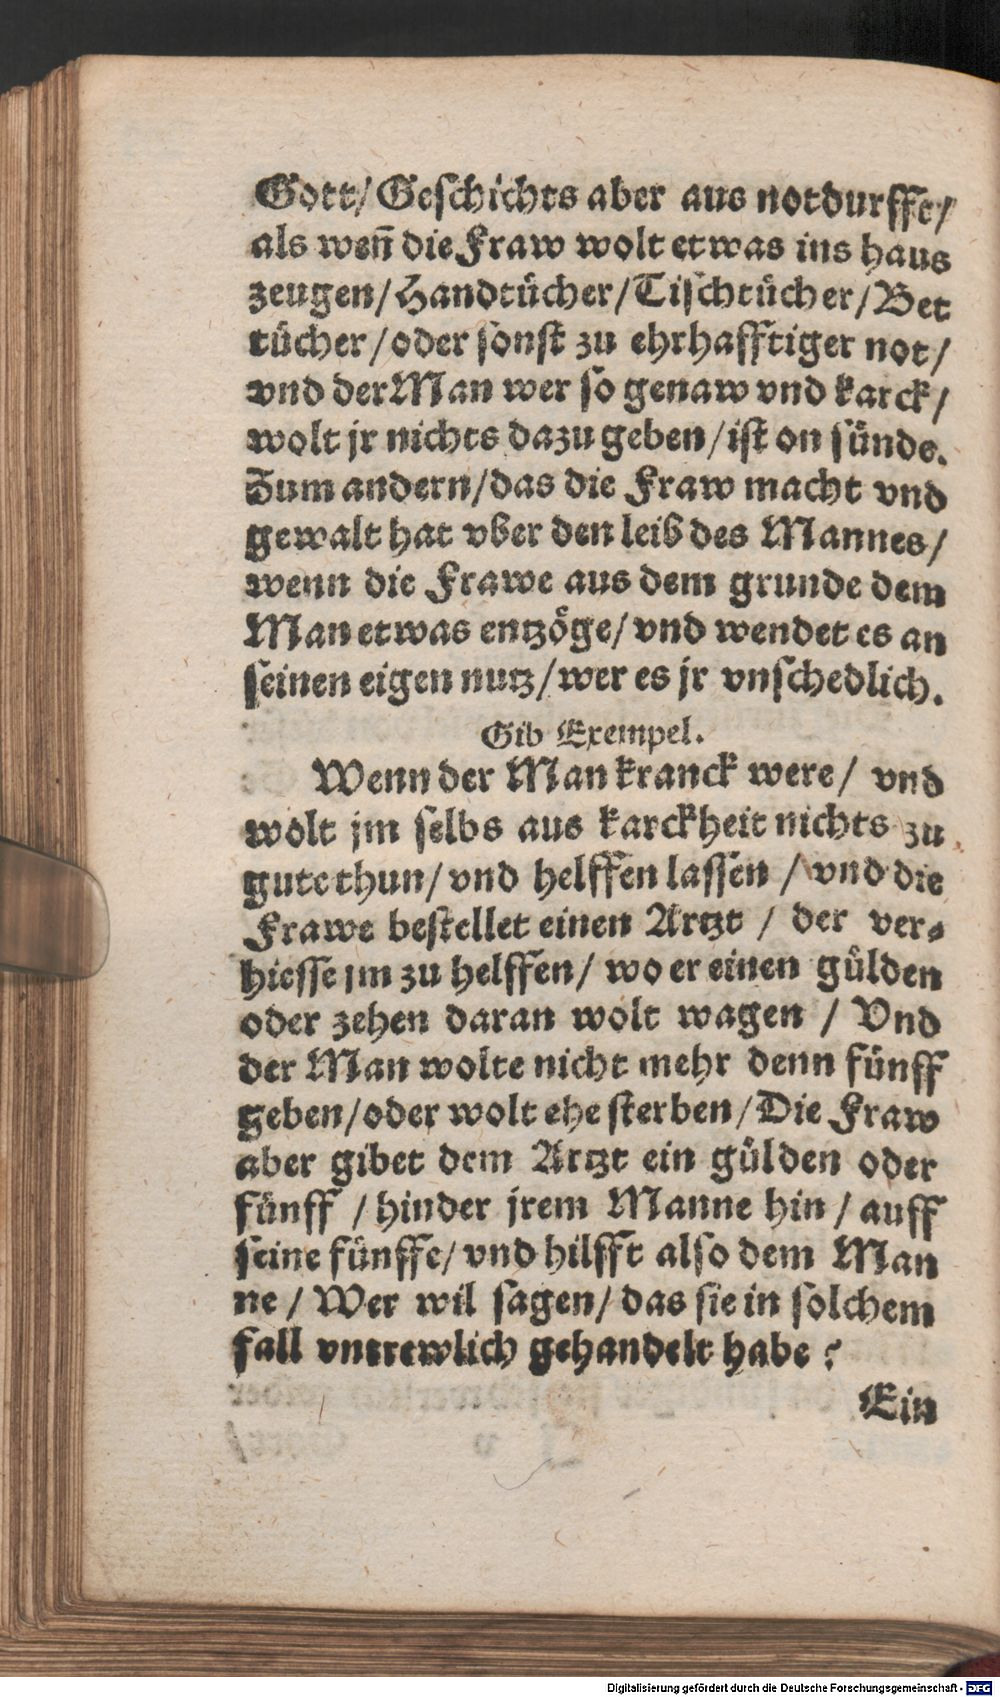 Gott/ Geschichts aber aus notdurfft/
als weñ die Fraw wolt etwas ins haus
zeugen/Handtücher/Tischtücher/Bet
tücher/oder sonst zu ehrhafftiger not/
vnd der Man wer so genaw vnd karck/
wolt jr nichts dazu geben/ist on sünde.
Zum andern/das die Fraw macht vnd
gewalt hat vber den leib des Mannes/
wenn die Frawe aus dem grunde dem
Man etwas entzöge/ vnd wendet es an
seinen eigen nutz/wer es jr vnschedlich.
Gib Exempel.
Wenn der Man kranck were/ vnd
wolt jm selbs aus karckheit nichts zu
gute thun/ vnd helffen lassen / vnd die
Frawe bestellet einen Artzt / der ver-
hiesse jm zu helffen/ wo er einen gülden
oder zehen daran wolt wagen / Vnd
der Man wolte nicht mehr denn fünff
geben/oder wolt ehe sterben/Die Fraw
aber gibet dem Artzt ein gülden oder
fünff / hinder jrem Manne hin/ auff
seine fünffe/ vnd hilfft also dem Man
ne / Wer wil sagen/ das sie in solchem
fall vntrewlich gehandelt habe ?
Ein
Digitalisierung gefördert durch die Deutsche Forschungsgemeinschaft - DFG